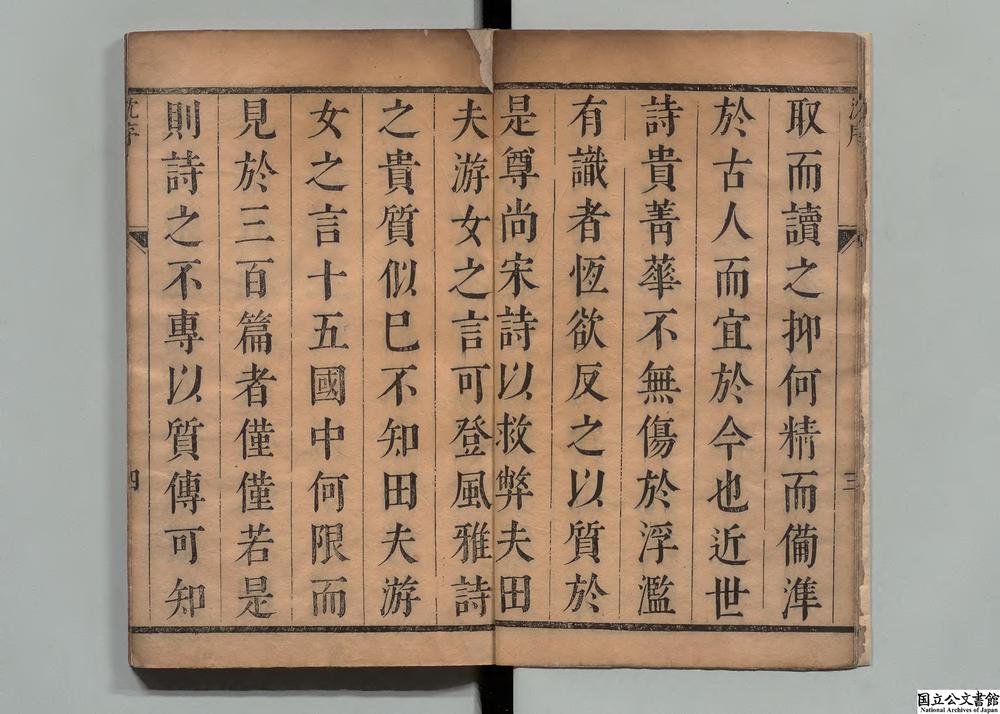 沈序
三
取而讀之抑何精而備準
於古人而宜於今也近世
詩貴菁華不無傷於浮濫
有識者恆欲反之以質於
是尊尚宋詩以救弊夫田
夫游女之言可登風雅詩
之貴質似巳不知田夫游
女之言十五國中何限而
見於三百篇者僅僅若是
則詩之不專以質傳可知
沈序
四
国立公文書館
National Archives of Japan